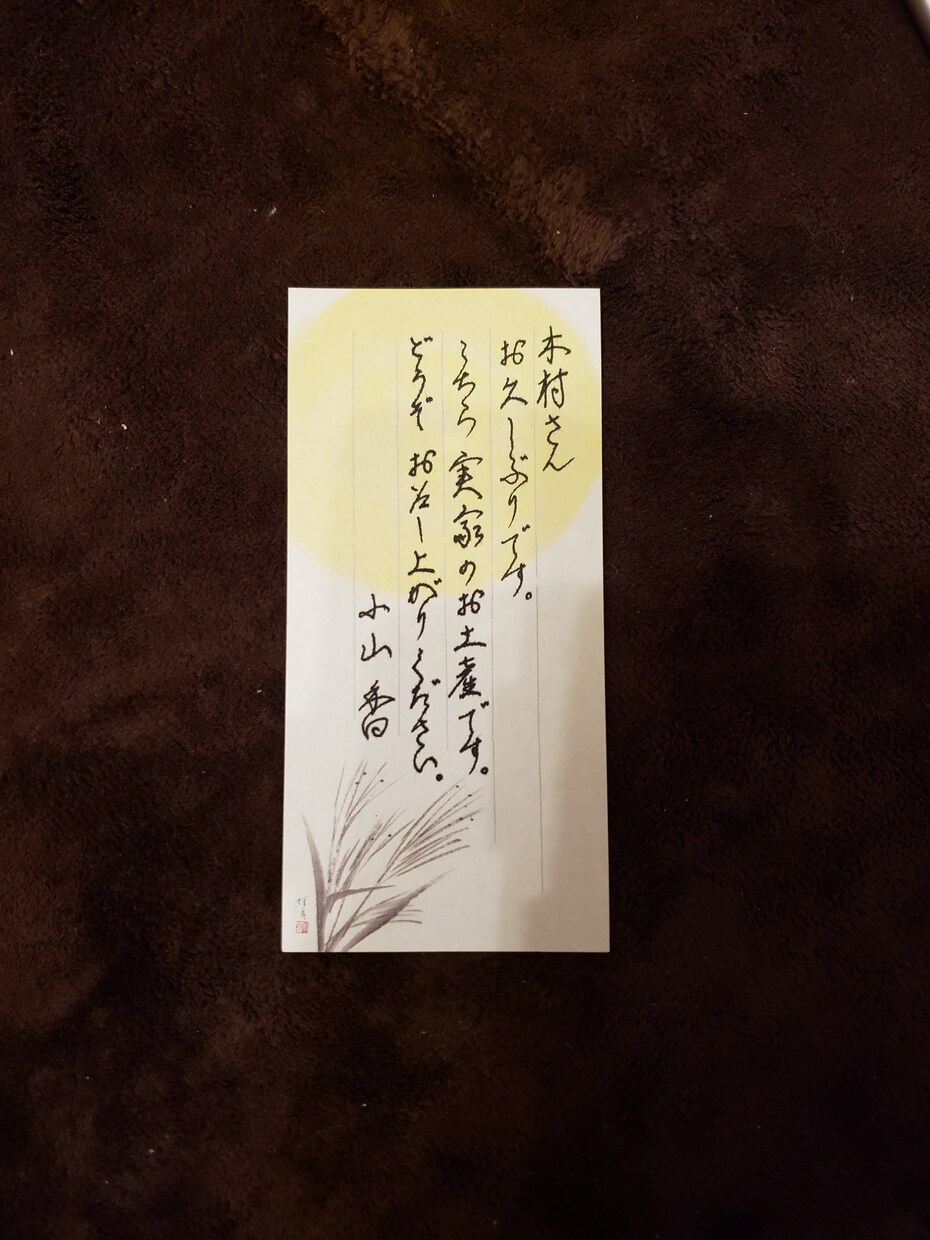 木村さん
お久しぶりです。
こちら 実家のお土産です。
どうぞ お召し上がりください。
小山 香